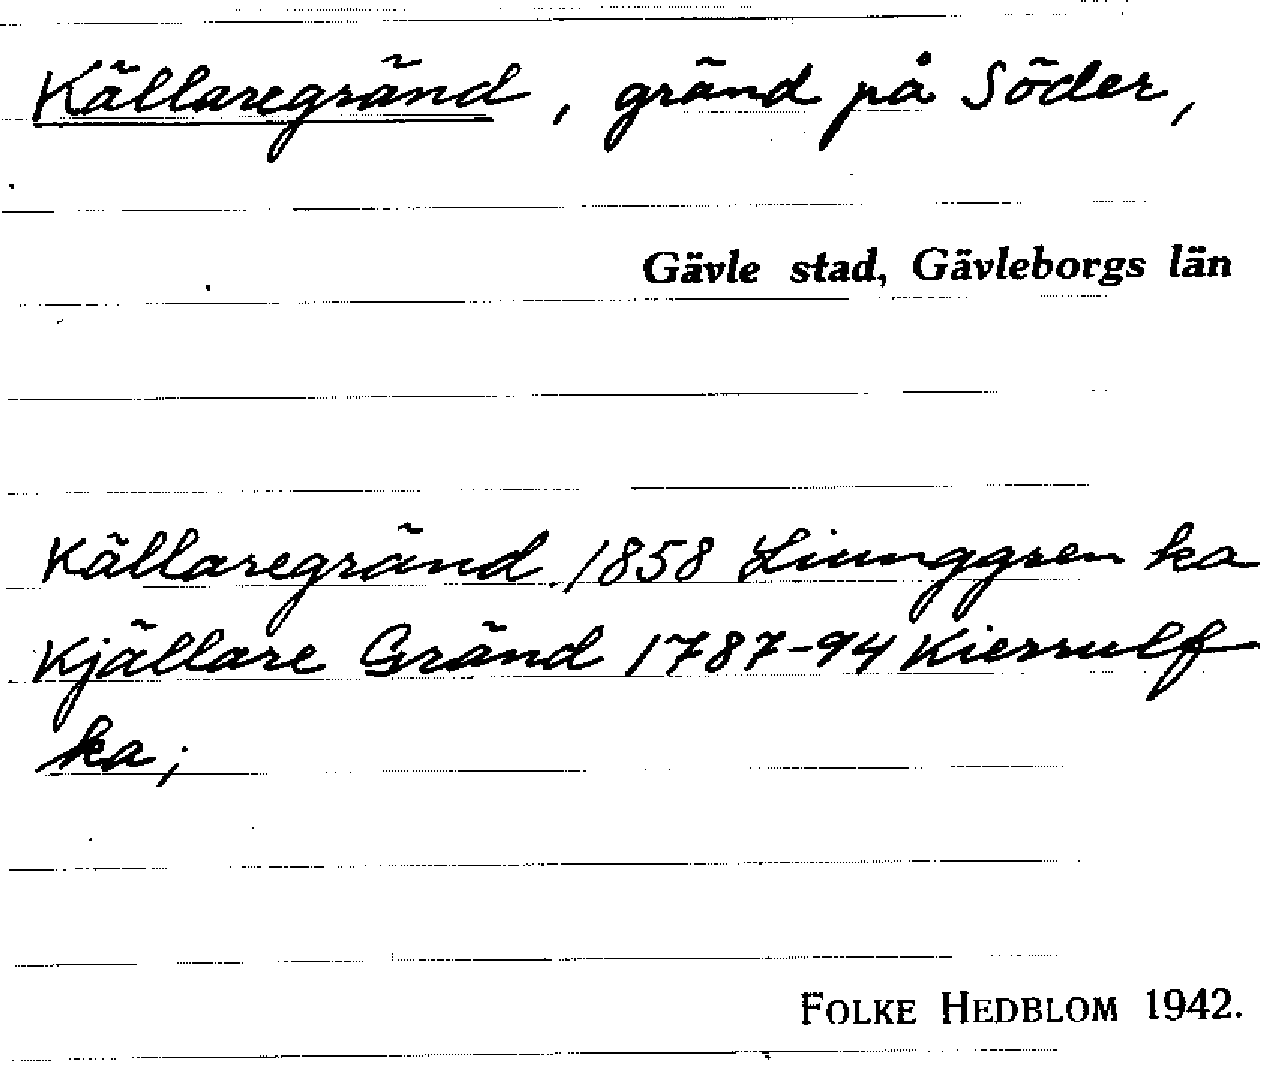 Källaregränd, gränd på Söder,
Gävle stad, Gävleborgs län
Källaregränd 1858 Liunggren ka
Kjällare Gränd 1787-94 Kierrulf
ka;
FOLKE HEDBLOM 1942.